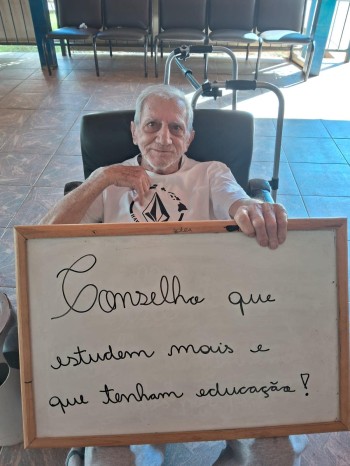 Conselho que
estudem mais e
que tenham educação!